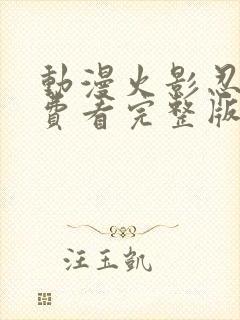 動漫火影忍
費看完整版
汪玉凱